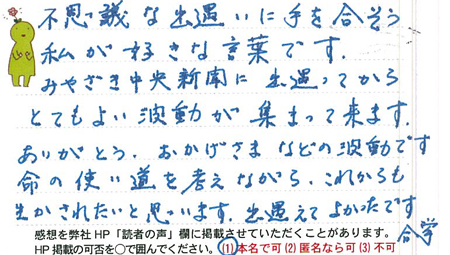 不思議な出遇いに手を合そう
私が好きな言葉です.
みやざき中央新聞に出遇ってから
とてもよい波動が集まって来ます.
ありがとう、おかげさまなどの波動です
命の使い道を考えながら、これからも
生かされたいと思います.出遇えてよかったです
合学
感想を弊社HP「読者の声」欄に掲載させていただくことがあります。
HP掲載の可否を○で囲んでください。(1)本名で可(2)匿名なら可(3)不可